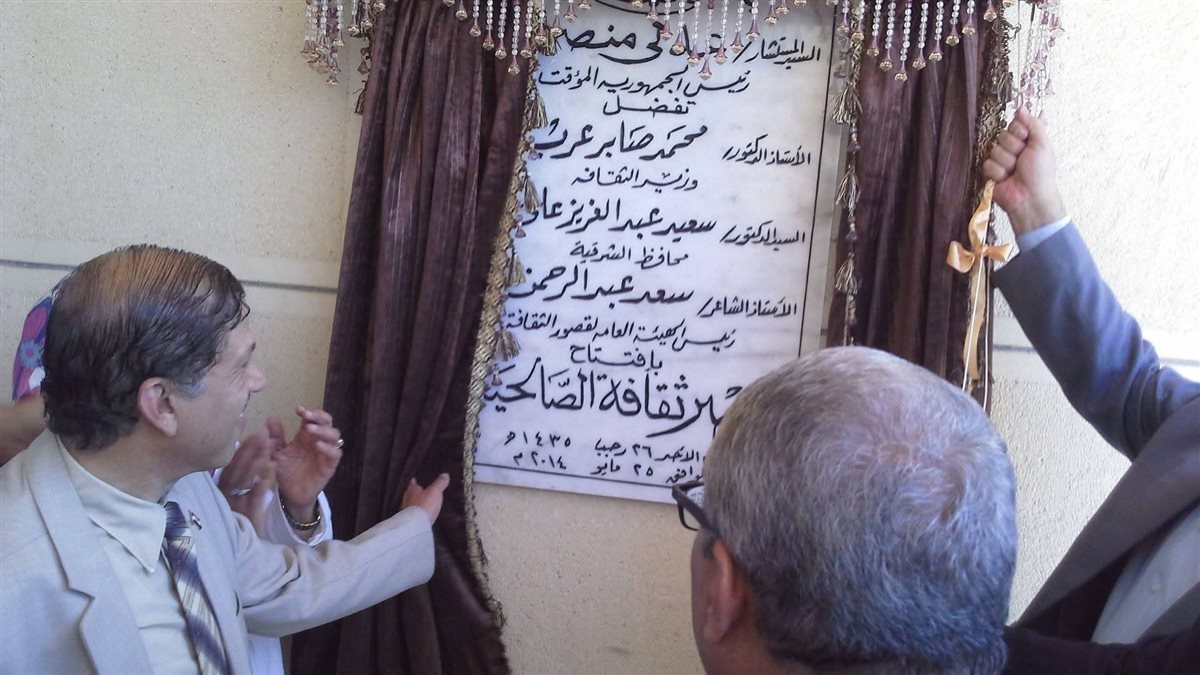 السيد المستشار / عدلى منصو
رئيس الجمهوريه المؤقت
تفضل
الأستاذ الدكتور / محمد صابر عرب
وزير الثقافه
السيد الدكتور / سعيد عبد العزيز عا
محافظ الشرقية
الأستاذ الشاعر / سعد عبد الرحمن
رئيس الهيئة العامه لقصور الثقافة
بإفتتاح
ثقافة الصالحي
الأحد ٢٦ رجب ١٤٣٥ هـ
٢٥ مايو ٢٠١٤ م